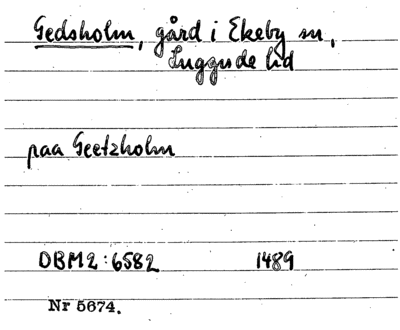 Gedsholm, gård i Ekeby sn,
Luggude hd
paa Geetzholm
DBM2:6582 1489
Nr 5674.